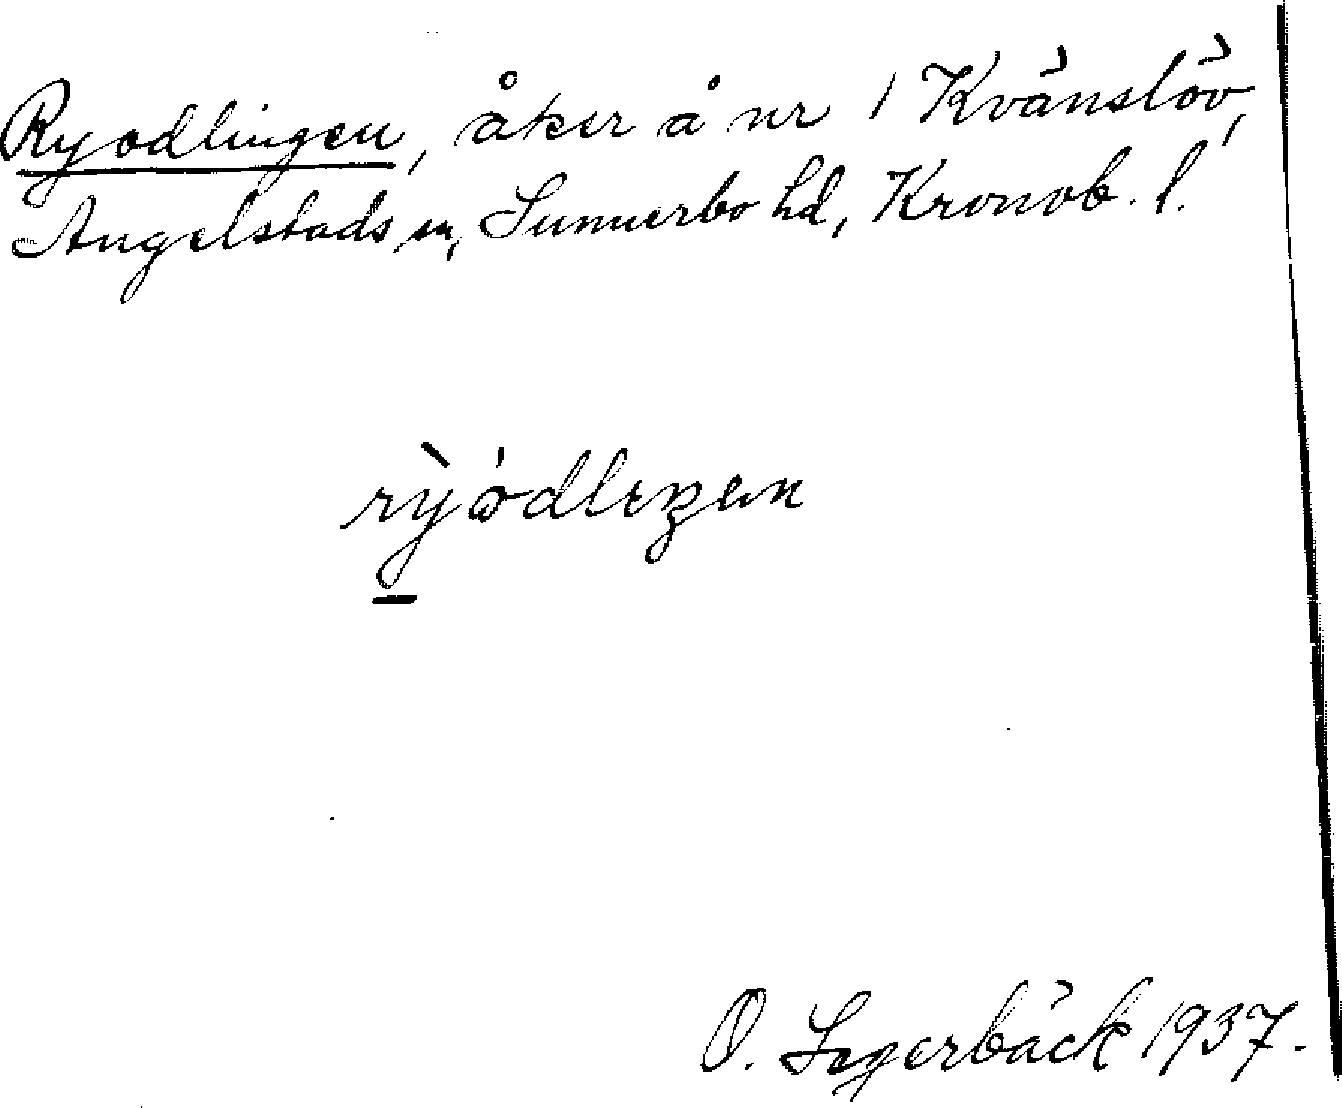 Ryodlingen, åker å nr 1 Kvänslöv,
Angelstads sn, Sunnerbo hd, Kronob. l.
rỳódleŋen
O. Segerbäck 1937.